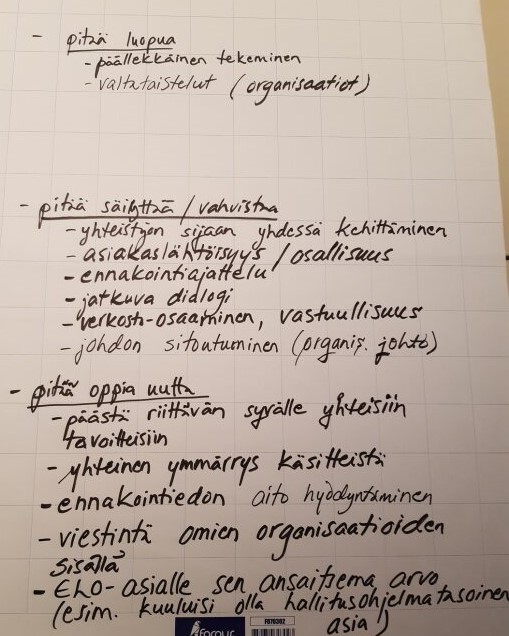 - pitää luopua
- päällekkäinen tekeminen
- valtataistelut (organisaatiot)
- pitää säilyttää / vahvistaa
- yhteistyön sijaan yhdessä kehittäminen
- asiakaslähtöisyys / osallisuus
- ennakointiajattelu
- jatkuva dialogi
- verkosto-osaaminen, vastuullisuus
- johdon sitoutuminen (organis. johto)
- pitää oppia uutta
- päästä riittävän syvälle yhteisiin
tavoitteisiin
- yhteinen ymmärrys käsitteistä
- ennakointiedon aito hyödyntäminen
- viestintä omien organisaatioiden
sisällä
- ELO-asialle sen ansaitsema arvo
(esim. kuuluisi olla hallitusohjelmatasoinen
asia!)
FO70302